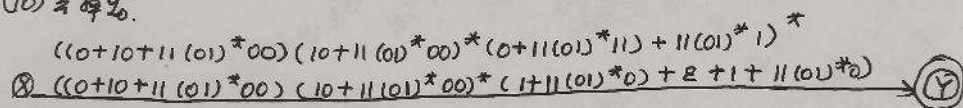 ((0+10+11(01)*00)(10+11(01)*00)*(0+11(01)*11)+11(01)*1)*
Ⓧ ((0+10+11(01)*00)(10+11(01)*00)*(1+11(01)*0)+ε+1+11(01)*0) Ⓨ